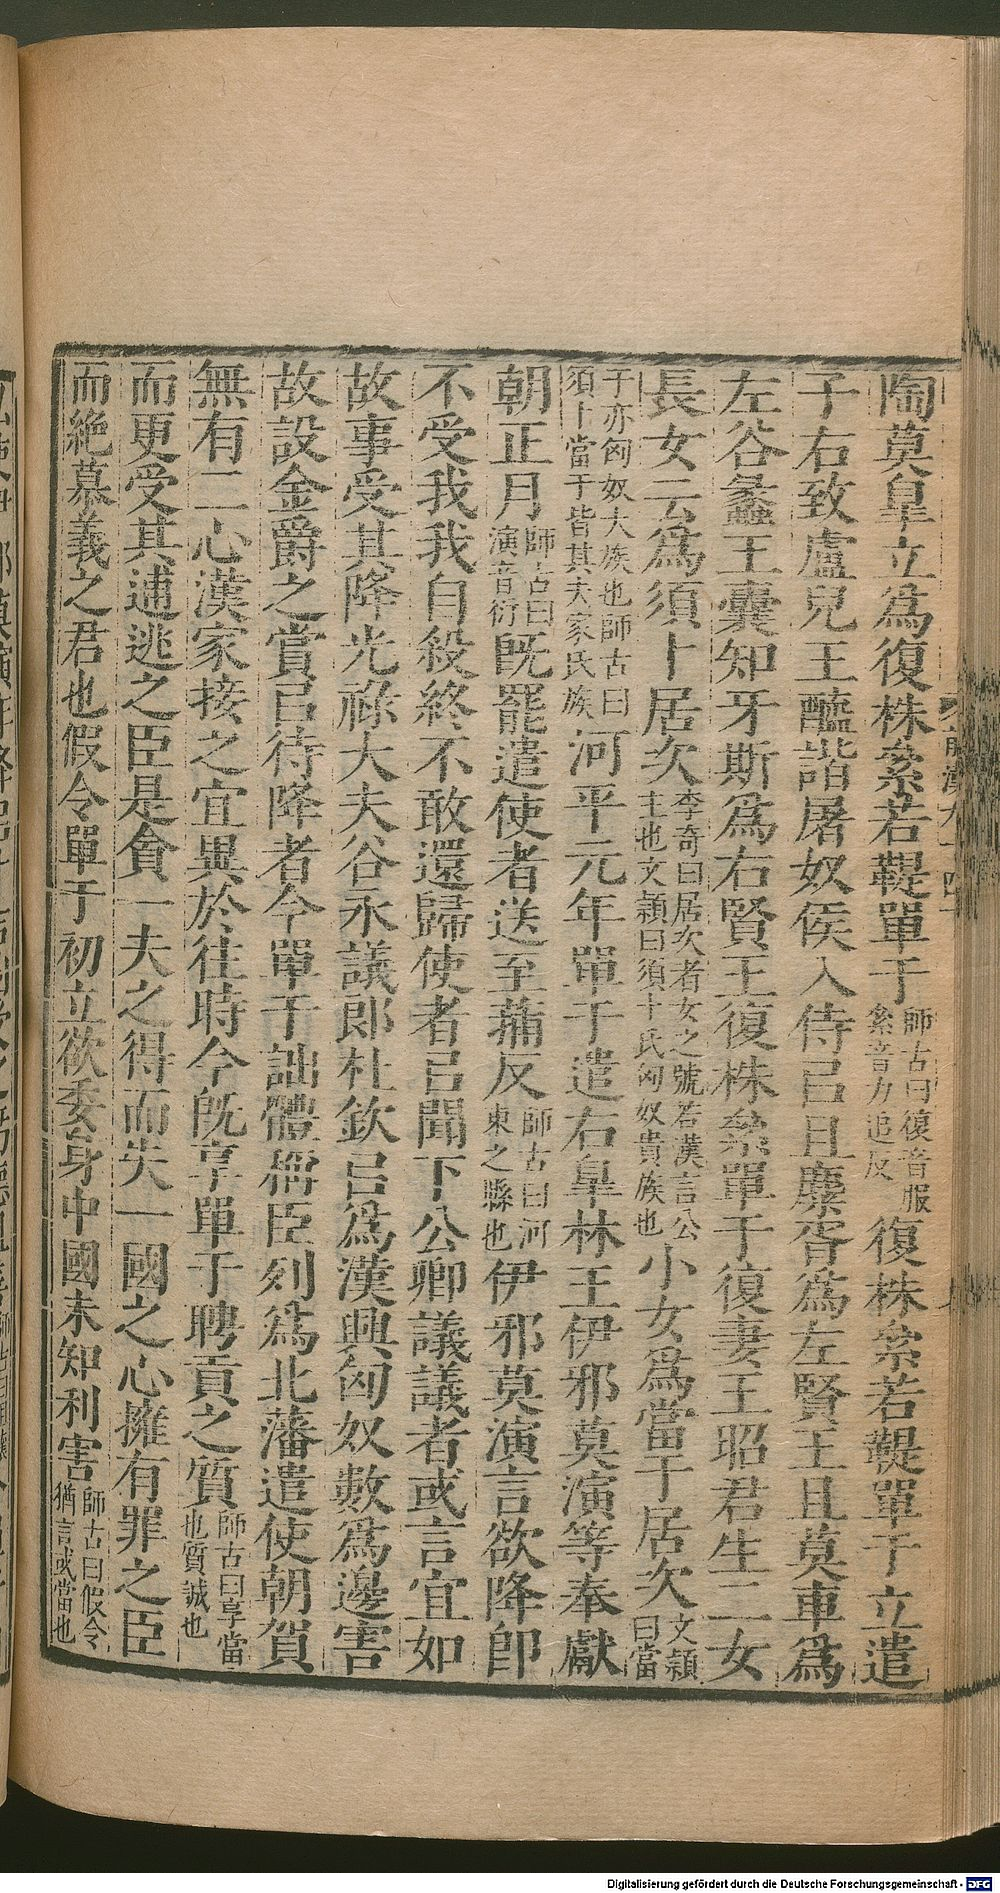 陶莫皐立爲復株絫若鞮單于師古曰復音服絫音力追反復株絫若鞮單于立遣
子右致盧兒王醯諧屠奴侯入侍㠯且麋胥爲左賢王且莫車爲
左谷蠡王囊知牙斯爲右賢王復株絫單于復妻王昭君生二女
長女云爲須卜居次李奇曰居次者女之號若漢言公主也文穎曰須卜氏匈奴貴族也小女爲當于居次文穎曰當
于亦匈奴大族也師古曰須卜當于皆其夫家氏族河平元年單于遣右皐林王伊邪莫演等奉獻
朝正月師古曰演音衍既罷遣使者送至蒲反師古曰河東之縣也伊邪莫演言欲降卽
不受我我自殺終不敢還歸使者㠯聞下公卿議議者或言宜如
故事受其降光祿大夫谷永議郎杜欽㠯爲漢興匈奴數爲邊害
故設金爵之賞㠯待降者今單于詘體稱臣列爲北藩遣使朝賀
無有二心漢家接之宜異於往時今既享單于聘貢之質師古曰享當也質誠也
而更受其逋逃之臣是貪一夫之得而失一國之心擁有罪之臣
而絕慕義之君也假令單于初立欲委身中國未知利害師古曰假令猶言或當也
Digitalisierung gefördert durch die Deutsche Forschungsgemeinschaft - DFG